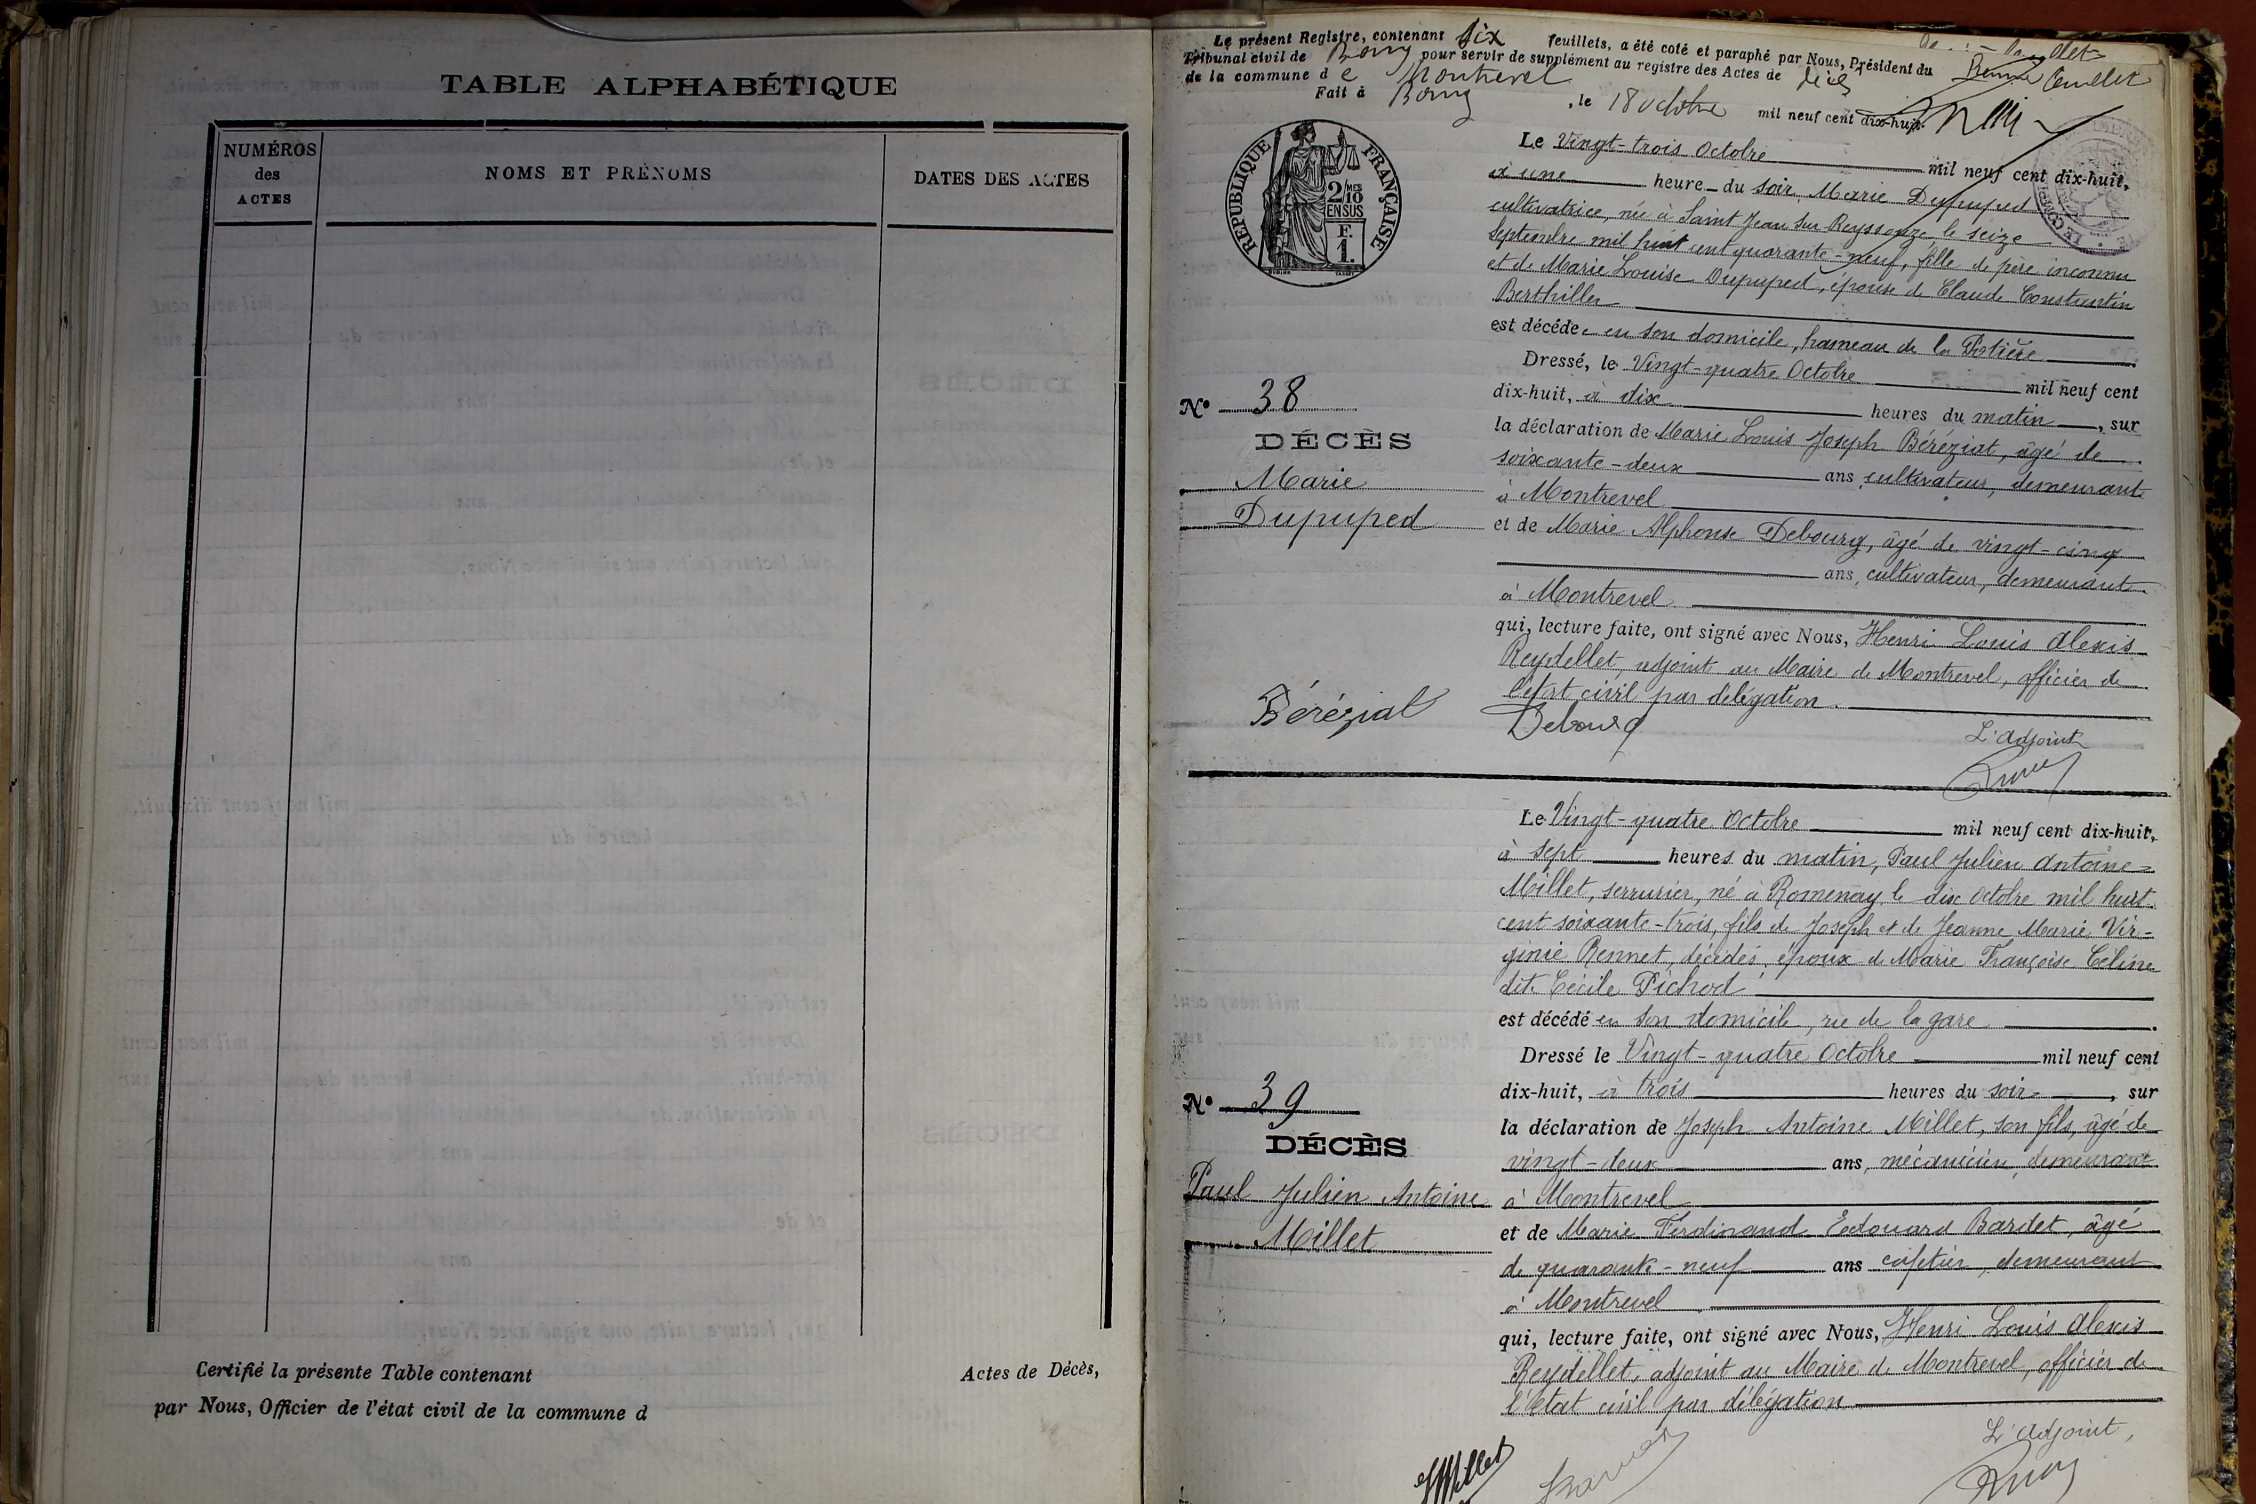 TABLE ALPHABÉTIQUE
NUMÉROS
des
ACTES
NOMS ET PRÉNOMS
DATES DES ACTES
Certifié la présente Table contenant Actes de Décès,
par Nous, Officier de l'état civil de la commune d
Le présent Registre, contenant six feuillets, a été coté et paraphé par Nous, Président du
Tribunal civil de Bourg pour servir de supplément au registre des Actes de décès
de la commune de Montrevel
Fait à Bourg, le 18 octobre mil neuf cent dix-huit.
RÉPUBLIQUE FRANÇAISE
2/10
MES
EN SUS
F.
1.
Le Vingt-trois Octobre mil neuf cent dix-huit,
à une heure du soir, Marie Dupuped
cultivatrice, née à Saint Jean sur Reyssouze le seize
Septembre mil huit cent quarante-neuf, fille de père inconnu
et de Marie Louise Dupuped, épouse de Claude Constantin
Berthiller
est décédée en son domicile, hameau de la
Dressé, le Vingt-quatre Octobre mil neuf cent
dix-huit, à dix heures du matin, sur
la déclaration de Marie Louis Joseph Béréziat, âgé de
soixante-deux ans, cultivateur, demeurant
à Montrevel
et de Marie Alphonse Debourg, âgé de vingt-cinq
ans, cultivateur, demeurant
à Montrevel
qui, lecture faite, ont signé avec Nous, Henri Louis Alexis
Reydellet, adjoint au Maire de Montrevel, officier de
l'état civil par délégation.
N° 38
DÉCÈS
Marie
Dupuped
Béréziat Debourg
L'adjoint
Le Vingt-quatre Octobre mil neuf cent dix-huit,
à sept heures du matin, Paul Julien Antoine
Millet, serrurier, né à Romenay le dix octobre mil huit
cent soixante-trois, fils de Joseph et de Jeanne Marie Vir-
ginie Rennet, décédés, époux de Marie Françoise Céline
dit Cécile Pichod
est décédé en son domicile, rue de la gare
Dressé le Vingt-quatre Octobre mil neuf cent
dix-huit, à trois heures du soir, sur
la déclaration de Joseph Antoine Millet, son fils, âgé de
vingt-deux ans, mécanicien, demeurant
à Montrevel
et de Marie Ferdinand Edouard Bardet, âgé
de quarante-neuf ans cafetier, demeurant
à Montrevel
qui, lecture faite, ont signé avec Nous, Henri Louis Alexis
Reydellet, adjoint au Maire de Montrevel, officier de
l'état civil par délégation
N° 39
DÉCÈS
Paul Julien Antoine
Millet
JMillet
L'adjoint,